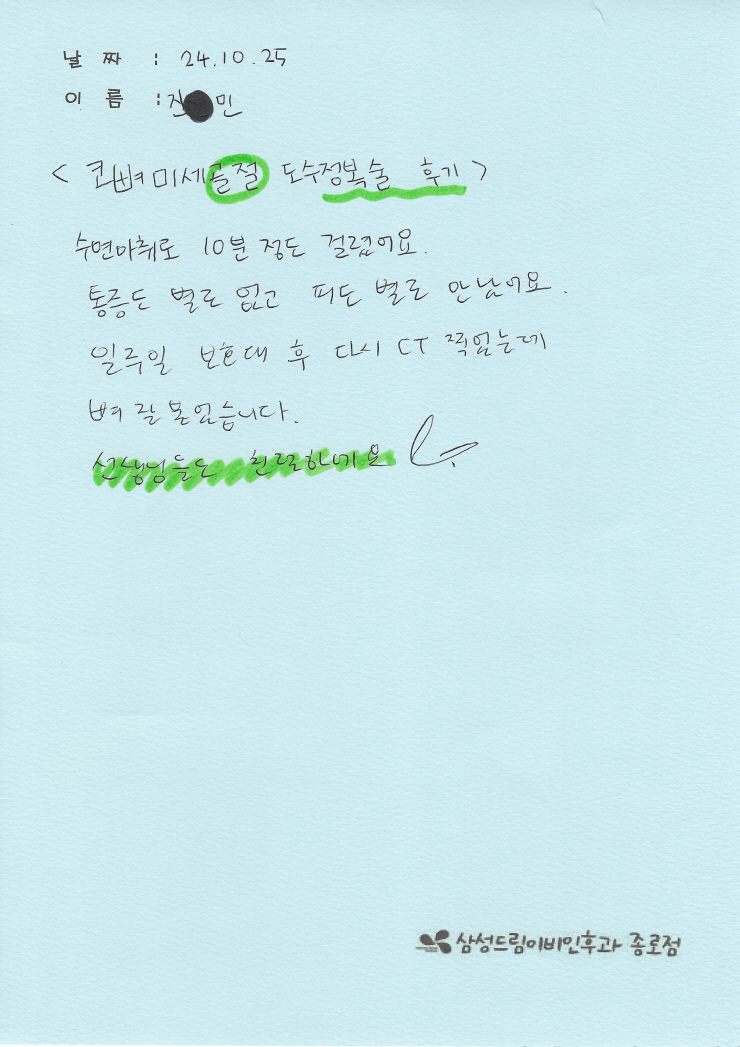 날 짜 : 24.10.25
이 름 : 진 민
< 코뼈 미세골절 도수정복술 후기 >
수면마취로 10분 정도 걸렸어요.
통증도 별로 없고 피도 별로 안 났어요.
일주일 보호대 후 다시 CT 찍었는데
뼈 잘 붙었습니다.
선생님들도 친절하네요
삼성드림이비인후과 종로점